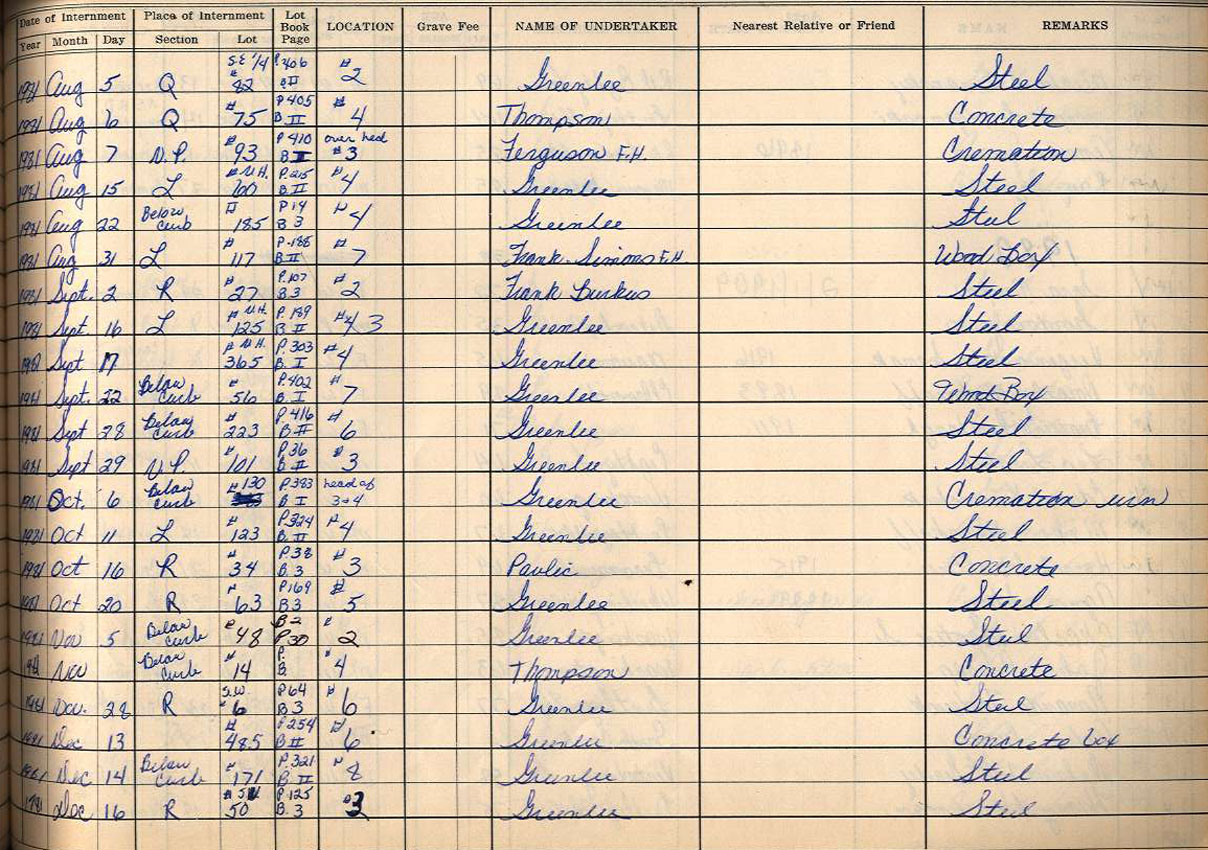 Date of Internment Place of Internment Lot Book Page LOCATION Grave Fee NAME OF UNDERTAKER Nearest Relative or Friend REMARKS
Year Month Day Section Lot
1981 Aug 5 Q S.E 1/4 # 82 P.306 B II # 2 Greenlee Steel
1981 Aug 6 Q # 75 P 405 B. II # 4 Thompson Concrete
1981 Aug 7 N.P. # 93 P 410 B II over head # 3 Ferguson F.H. Cremation
1981 Aug 15 L # N.H. P.215 B II # 4 Greenlee Steel
1981 Aug 22 Below curb # 185 P 14 B 3 # 4 Greenlee Steel
1981 Aug 31 L # 117 P-188 B II # 7 Frank Simons F.H. Wood Box
1981 Sept. 2 R # 27 P.107 B 3 # 2 Frank Burkus Steel
1981 Sept. 16 L # N.H. 125 P. 189 B II # 3 Greenlee Steel
1981 Sept 17 # N.H. 365 P.303 B. I # 4 Greenlee Steel
1981 Sept. 22 Below curb # 56 P.402 B I # 7 Greenlee Wood Box
1981 Sept 28 Below curb # 223 P.416 B II # 6 Greenlee Steel
1981 Sept 29 N.P. # 101 P.36 B II # 3 Greenlee Steel
1981 Oct. 6 Below curb # 130 P.383 B I head of 3+4 Greenlee Cremation urn
1981 Oct 11 L # 123 P.324 B. II # 4 Greenlee Steel
1981 Oct 16 R # 34 P.38 B. 3 # 3 Pavlic Concrete
1981 Oct 20 R # 63 P169 B3 # 5 Greenlee Steel
1981 Nov 5 Below curb # 48 B 2 P.30 # 2 Greenlee Steel
1981 Nov Below curb # 14 P. B. # 4 Thompson Concrete
1981 Nov. 28 R S.W. # 6 P 64 B 3 # 6 Greenlee Steel
1981 Dec 13 # 485 P.254 B II # 6 Greenlee Concrete box
1981 Dec 14 Below curb # 171 P.321 B. II # 8 Greenlee Steel
1981 Dec 16 R # 50 P.125 B. 3 # 3 Greenlee Steel